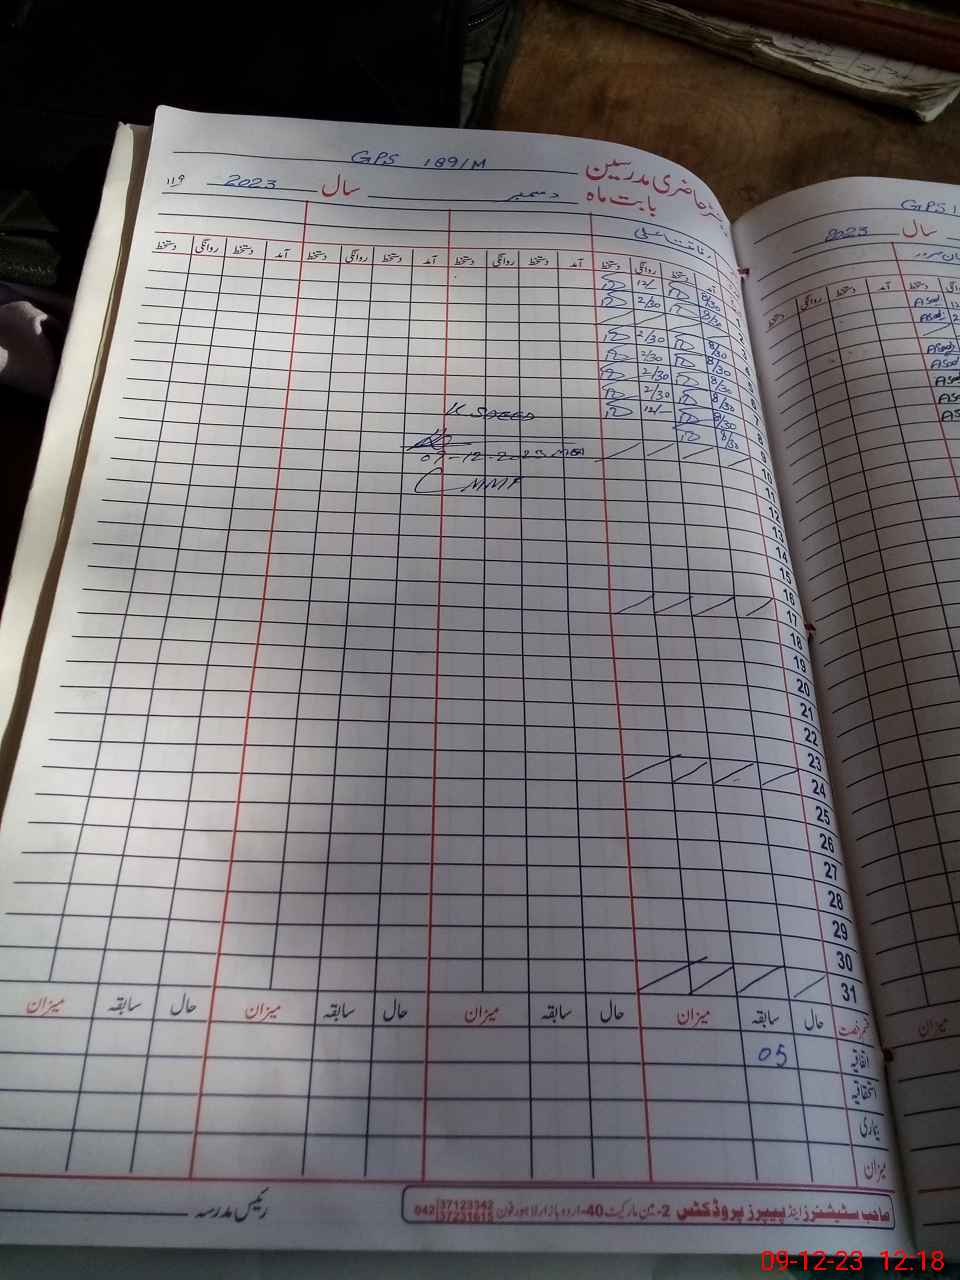 GPS 189/M
رجسٹر حاضری مدرسین
بابت ماہ دسمبر سال 2023 ۱۱۹
رفاقت علی
آمد دستخط روانگی دستخط آمد دستخط روانگی دستخط آمد دستخط روانگی دستخط آمد دستخط روانگی دستخط
8/30 12/
8/30 2/30
8/30 2/30
8/30 2/30
8/30 2/30
8/30 2/30
8/30 12/
8/30
K SAEED
07-12-2023 MEA
CMMF
1
2
3
4
5
6
7
8
9
10
11
12
13
14
15
16
17
18
19
20
21
22
23
24
25
26
27
28
29
30
31
قسم رخصت حال سابقہ میزان حال سابقہ میزان حال سابقہ میزان حال سابقہ میزان
اتفاقیہ 05
استحقاقیہ
بیماری
میزان
رئیس مدرسہ
صاحب سٹیشنرز اینڈ پیپرز پروڈکٹس 2-مین مارکیٹ 40-اردو بازار لاہور فون 042 37123342 37231615
GPS 1
سال 2023
آمد دستخط روانگی دستخط
Asad 12
Asad 2
Asad
Asad
Asad
Asa
Asa
میزان
09-12-23 12:18